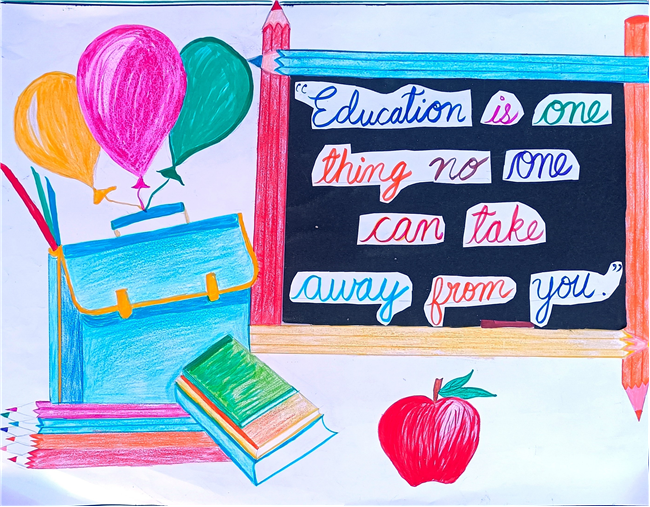 "Education is one
thing no one
can take
away from you."